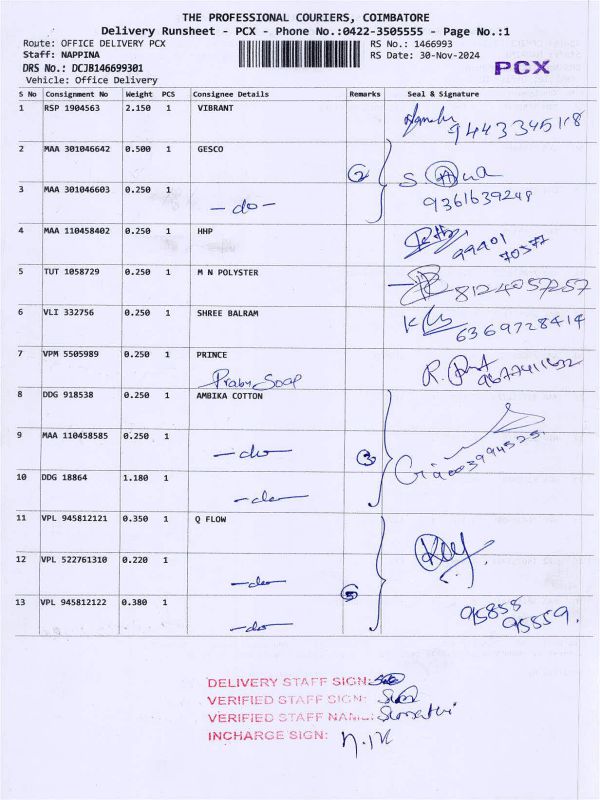 THE PROFESSIONAL COURIERS, COIMBATORE
Delivery Runsheet - PCX - Phone No.:0422-3505555 - Page No.:1
Route: OFFICE DELIVERY PCX
RS No.: 1466993
Staff: NAPPINA
RS Date: 30-Nov-2024
DRS No.: DCJB146699301
PCX
Vehicle: Office Delivery
S No Consignment No Weight PCS Consignee Details Remarks Seal & Signature
1 RSP 1904563 2.150 1 VIBRANT
9443345118
2 MAA 301046642 0.500 1 GESCO
2
3 MAA 301046603 0.250 1
-do- 9361639248
4 MAA 110458402 0.250 1 HHP
99901
70577
5 TUT 1058729 0.250 1 M N POLYSTER
8124057257
6 VLI 332756 0.250 1 SHREE BALRAM
6369728414
7 VPM 5505989 0.250 1 PRINCE
Prabu Soap
8 DDG 918538 0.250 1 AMBIKA COTTON
9 MAA 110458585 0.250 1
-do- 3
10 DDG 18864 1.180 1
-do-
11 VPL 945812121 0.350 1 Q FLOW
12 VPL 522761310 0.220 1
-do-
13 VPL 945812122 0.380 1
-do-
95858
95559.
DELIVERY STAFF SIGN:
VERIFIED STAFF SIGN:
VERIFIED STAFF NAME:
INCHARGE SIGN: